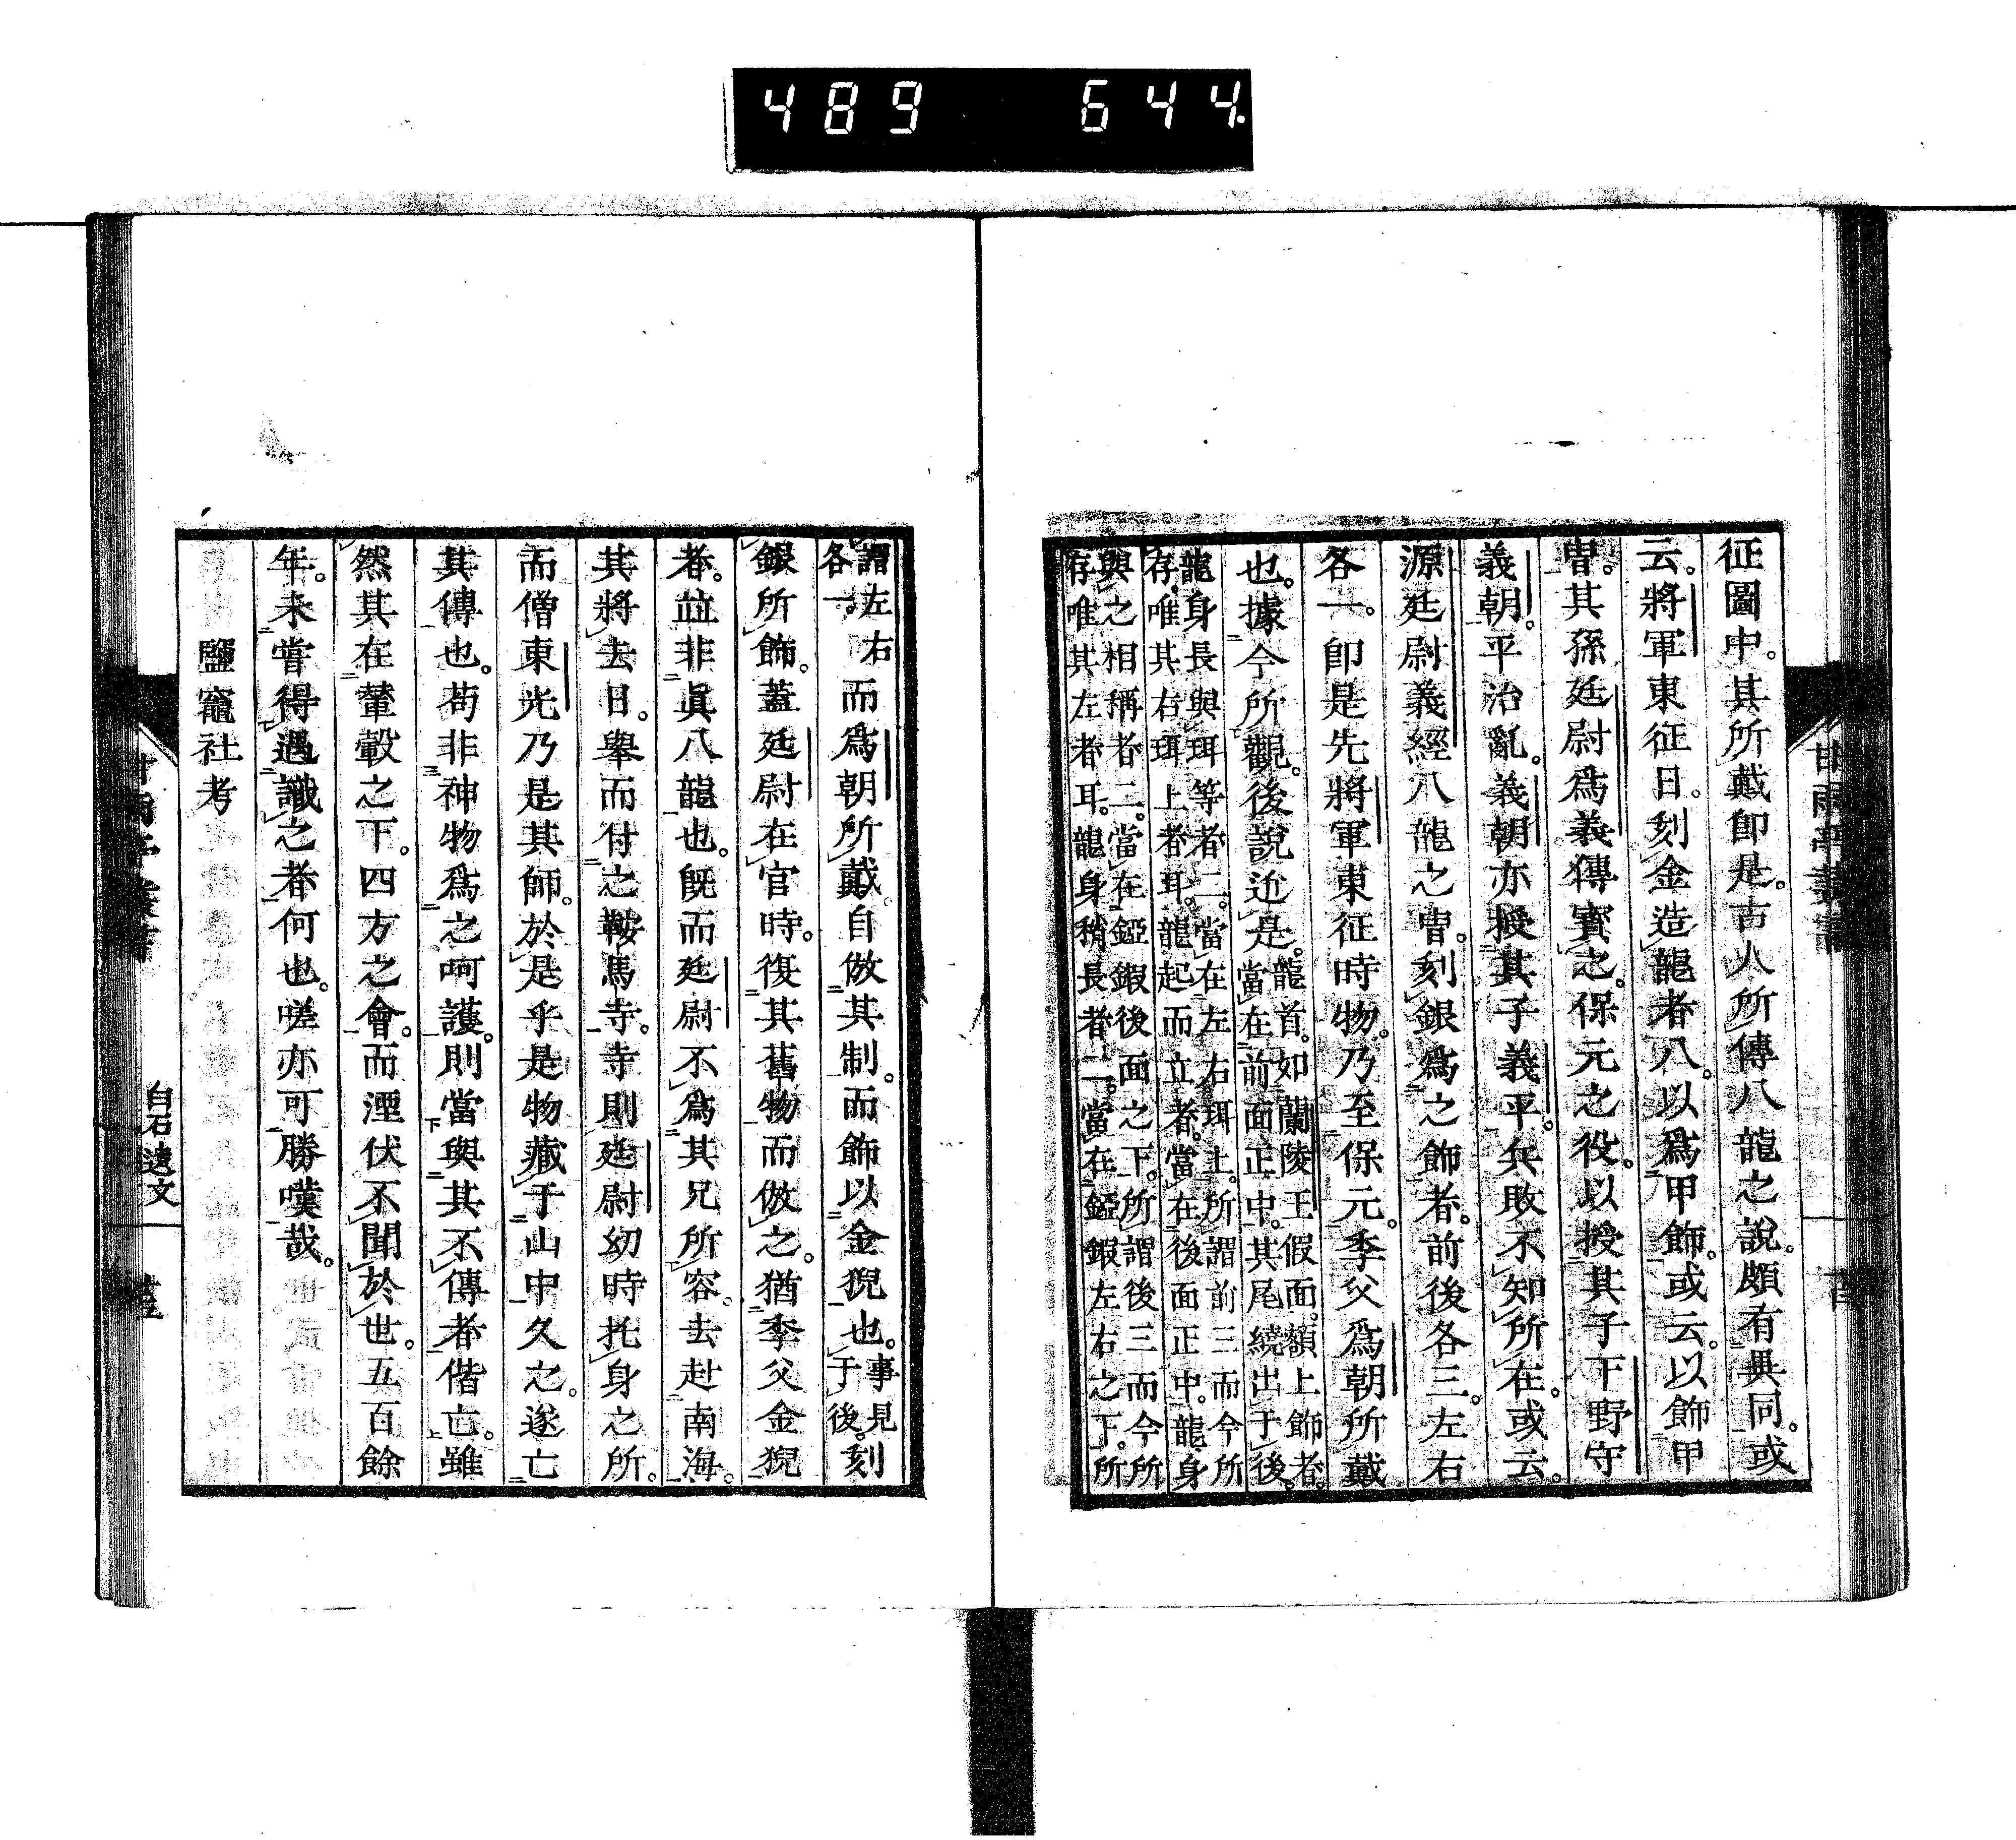 489 644
征圖中。其所戴卽是。古人所傳八龍之說。頗有異同。或
云。將軍東征日。刻金造龍者八。以爲甲飾。或云。以飾甲
冑。其孫廷尉爲義傳寶之。保元之役。以授其子下野守
義朝。平治亂。義朝亦授其子義平。兵敗不知所在。或云。
源廷尉義經八龍之冑。刻銀爲之飾者。前後各三。左右
各一。卽是先將軍東征時物。乃至保元。季父爲朝所戴
也。據今所觀。後說近是。龍首。如蘭陵王假面。額上飾者。
當在前面正中。其尾繞出于後。
龍身長與珥等者二。當在左右珥上。所謂前三而今所
存唯其右珥上者耳。龍起而立者。當在後面正中。龍身
與之相稱者二。當在錏鍜後面之下。所謂後三而今所
存唯其左者耳。龍身稍長者二。當在錏鍜左右之下。所
謂左右
各一。而爲朝所戴。自倣其制。而飾以金猊也。事見
于後。刻
銀所飾。蓋廷尉在官時。復其舊物而倣之。猶季父金猊
者。竝非眞八龍也。旣而廷尉不爲其兄所容。去赴南海。
其將去日。舉而付之鞍馬寺。寺則廷尉幼時托身之所。
而僧東光乃是其師。於是乎是物藏于山中久之。遂亡
其傳也。苟非神物爲之呵護。則當與其不傳者偕亡。雖
然其在輦轂之下。四方之會。而湮伏不聞於世。五百餘
年。未嘗得遇識之者何也。嗟亦可勝嘆哉。
鹽竈社考
白石遺文